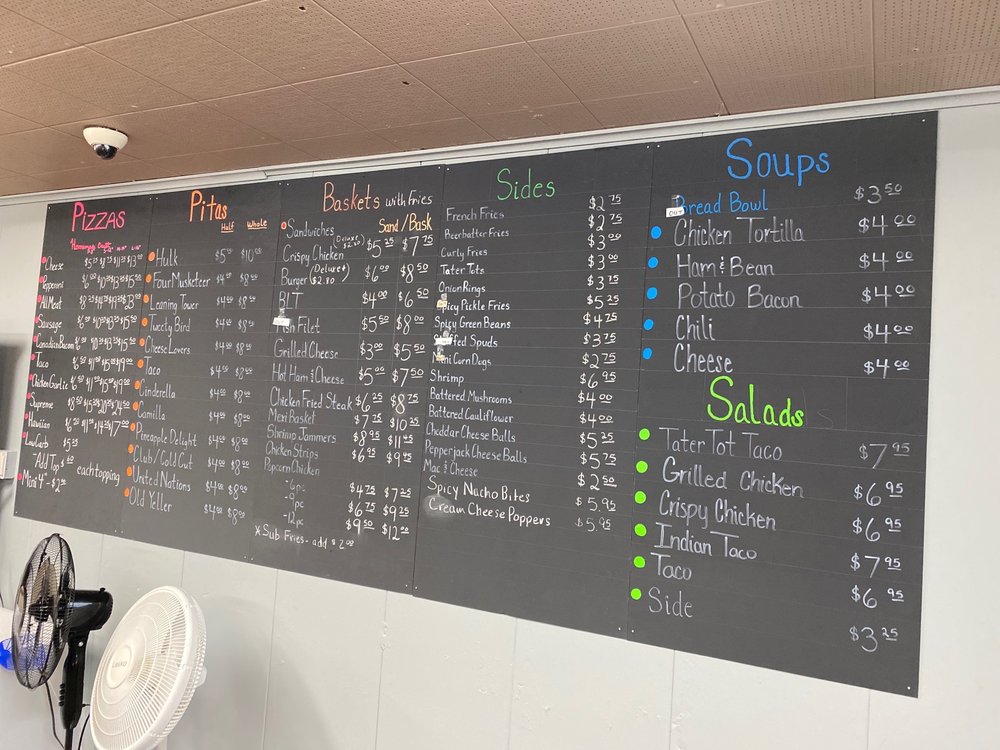 PIZZAS
Homemade Crust
Cheese
Pepperoni
All Meat
Sausage
Canadian Bacon
Taco
Chicken Garlic
Supreme
Hawaiian
Low Carb $5.25
-Add Top $ each topping
Mini 4" - $2.00
Pitas
Half Whole
Hulk $5.00 $10.00
Four Musketeer $4.00 $8.00
Leaning Tower $4.00 $8.00
Tweety Bird $4.00 $8.00
Cheese Lovers $4.00 $8.00
Taco $4.00 $8.00
Cinderella $4.00 $8.00
Camilla $4.00 $8.00
Pineapple Delight $4.00 $8.00
Club/Cold Cut $4.00 $8.00
United Nations $4.00 $8.00
Old Yeller $4.00 $8.00
Baskets with Fries
Sandwiches Sand/Bask
Crispy Chicken (Deluxe+ $2.80) $5.25 $7.75
Burger (Deluxe+ $2.80) $6.00 $8.50
BLT $4.00 $6.50
Fish Filet $5.50 $8.00
Grilled Cheese $3.00 $5.50
Hot Ham & Cheese $5.00 $7.50
Chicken Fried Steak $6.25 $8.75
Mexi Basket $7.75 $10.25
Shrimp Jammers $8.95 $11.45
Chicken Strips $6.95 $9.45
Popcorn Chicken
-6pc $4.75 $7.25
-9pc $6.75 $9.25
-12pc $9.50 $12.00
*Sub Fries - add $2.00
Sides
French Fries $2.75
Beerbatter Fries $2.75
Curly Fries $3.00
Tater Tots $3.00
Onion Rings $3.75
Spicy Pickle Fries $5.25
Spicy Green Beans $4.75
Stuffed Spuds $3.75
Mini Corn Dogs $2.75
Shrimp $6.95
Battered Mushrooms $4.00
Battered Cauliflower $4.00
Cheddar Cheese Balls $5.25
Pepperjack Cheese Balls $5.75
Mac & Cheese $2.50
Spicy Nacho Bites $5.95
Cream Cheese Poppers $5.95
Soups
Bread Bowl $3.50
OUT
Chicken Tortilla $4.00
Ham & Bean $4.00
Potato Bacon $4.00
Chili $4.00
Cheese $4.00
Salads
Tater Tot Taco $7.95
Grilled Chicken $6.95
Crispy Chicken $6.95
Indian Taco $7.95
Taco $6.95
Side $3.25
Lasko